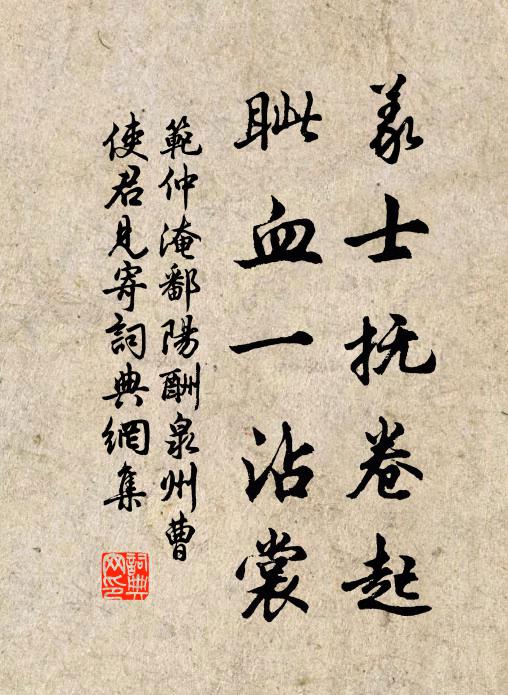 義士抚卷起
眦血一沾裳
範仲淹鄱陽酬泉州曹
使君見寄詞典網集
詞典
网印